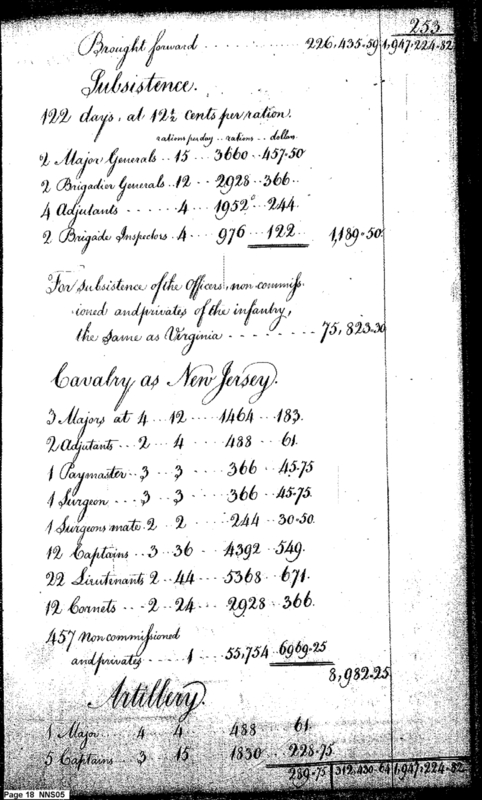 253.
Brought forward 226,435.59 1,947,224.82
Subsistence.
122 days, at 12½ cents per ration.
rations per day rations dollars
2 Major Generals 15 3660 457.50
2 Brigadier Generals 12 2928 366
4 Adjutants 4 1952 244
2 Brigade Inspectors 4 976 122 1,189.50
For subsistence of the Officers, non commiss
ioned and privates of the infantry,
the same as Virginia 75,823.30
Cavalry as New Jersey.
3 Majors at 4 12 1464 183
2 Adjutants 2 4 488 61
1 Paymaster 3 3 366 45.75
1 Surgeon 3 3 366 45.75
1 Surgeons mate 2 2 244 30.50
12 Captains 3 36 4392 549
22 Lieutinants 2 44 5368 671
12 Cornets 2 24 2928 366
457 Non commissioned
and privates 1 55,754 6969.25
8,982.25
Artillery.
1 Major 4 4 488 61
5 Captains 3 15 1830 228.75
289.75 312,430.64 1,947,224.82
Page 18 NNS05